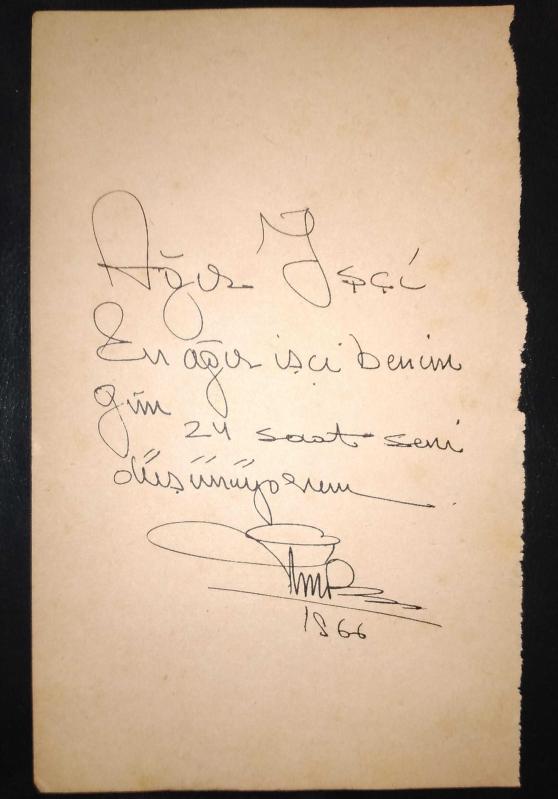 Ağır İşçi
En ağır işçi benim
gün
24 saat seni
düşünüyorum
1966